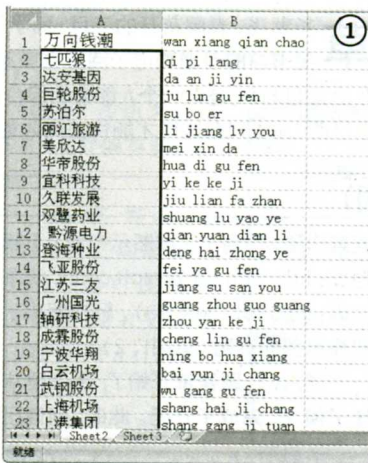 ①
A B
1 万向钱潮 wan xiang qian chao
2 七匹狼 qi pi lang
3 达安基因 da an ji yin
4 巨轮股份 ju lun gu fen
5 苏泊尔 su bo er
6 丽江旅游 li jiang lv you
7 美欣达 mei xin da
8 华帝股份 hua di gu fen
9 宜科科技 yi ke ke ji
10 久联发展 jiu lian fa zhan
11 双鹭药业 shuang lu yao ye
12 黔源电力 qian yuan dian li
13 登海种业 deng hai zhong ye
14 飞亚股份 fei ya gu fen
15 江苏三友 jiang su san you
16 广州国光 guang zhou guo guang
17 轴研科技 zhou yan ke ji
18 成霖股份 cheng lin gu fen
19 宁波华翔 ning bo hua xiang
20 白云机场 bai yun ji chang
21 武钢股份 wu gang gu fen
22 上海机场 shang hai ji chang
23 上港集团 shang gang ji tuan
Sheet2 Sheet3
就绪